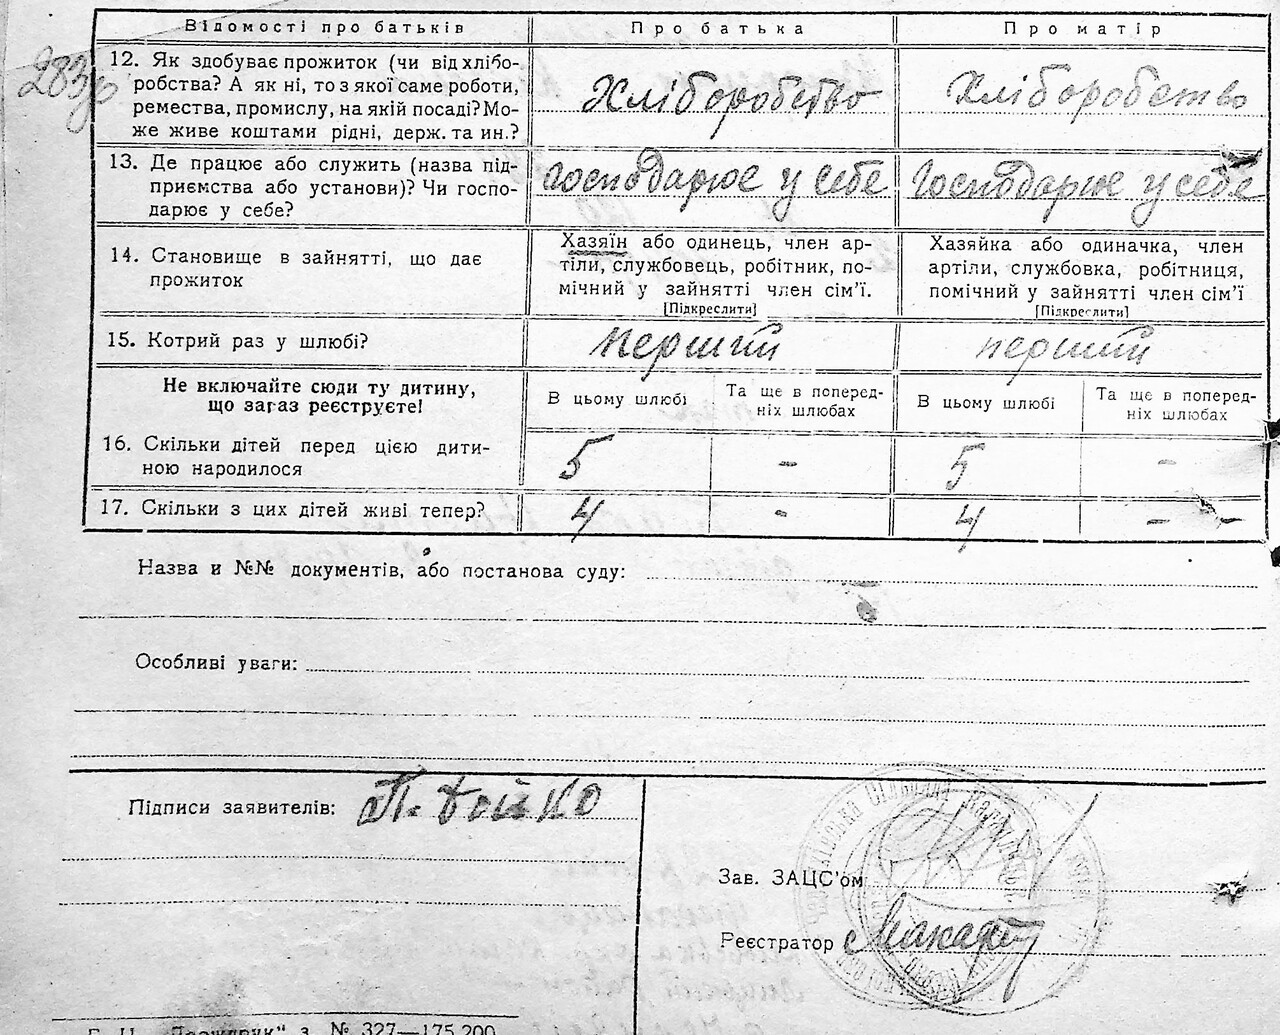 Відомості про батьків Про батька Про матір
283
12. Як здобуває прожиток (чи від хлібо-
робства? А як ні, то з якої саме роботи,
ремества, промислу, на якій посаді? Мо-
же живе коштами рідні, держ. та ин.?
Хліборобство Хліборобство
13. Де працює або служить (назва під-
приємства або установи)? Чи госпо-
дарює у себе?
господарює у себе Господарює у себе
14. Становище в зайнятті, що дає
прожиток
Хазяїн або одинець, член ар-
тіли, службовець, робітник, по-
мічний у зайнятті член сім’ї.
[Підкреслити]
Хазяйка або одиначка, член
артіли, службовка, робітниця,
помічний у зайнятті член сім’ї
[Підкреслити]
15. Котрий раз у шлюбі? перший перший
Не включайте сюди ту дитину,
що зараз реєструєте!
В цьому шлюбі Та ще в поперед-
ніх шлюбах
В цьому шлюбі Та ще в поперед-
ніх шлюбах
16. Скільки дітей перед цією дити-
ною народилося
5 - 5 -
17. Скільки з цих дітей живі тепер? 4 - 4 - -
Назва и №№ документів, або постанова суду:
Особливі уваги:
Підписи заявителів: П. Бойко
Зав. ЗАЦС’ом
Реєстратор
№ 327—175.200